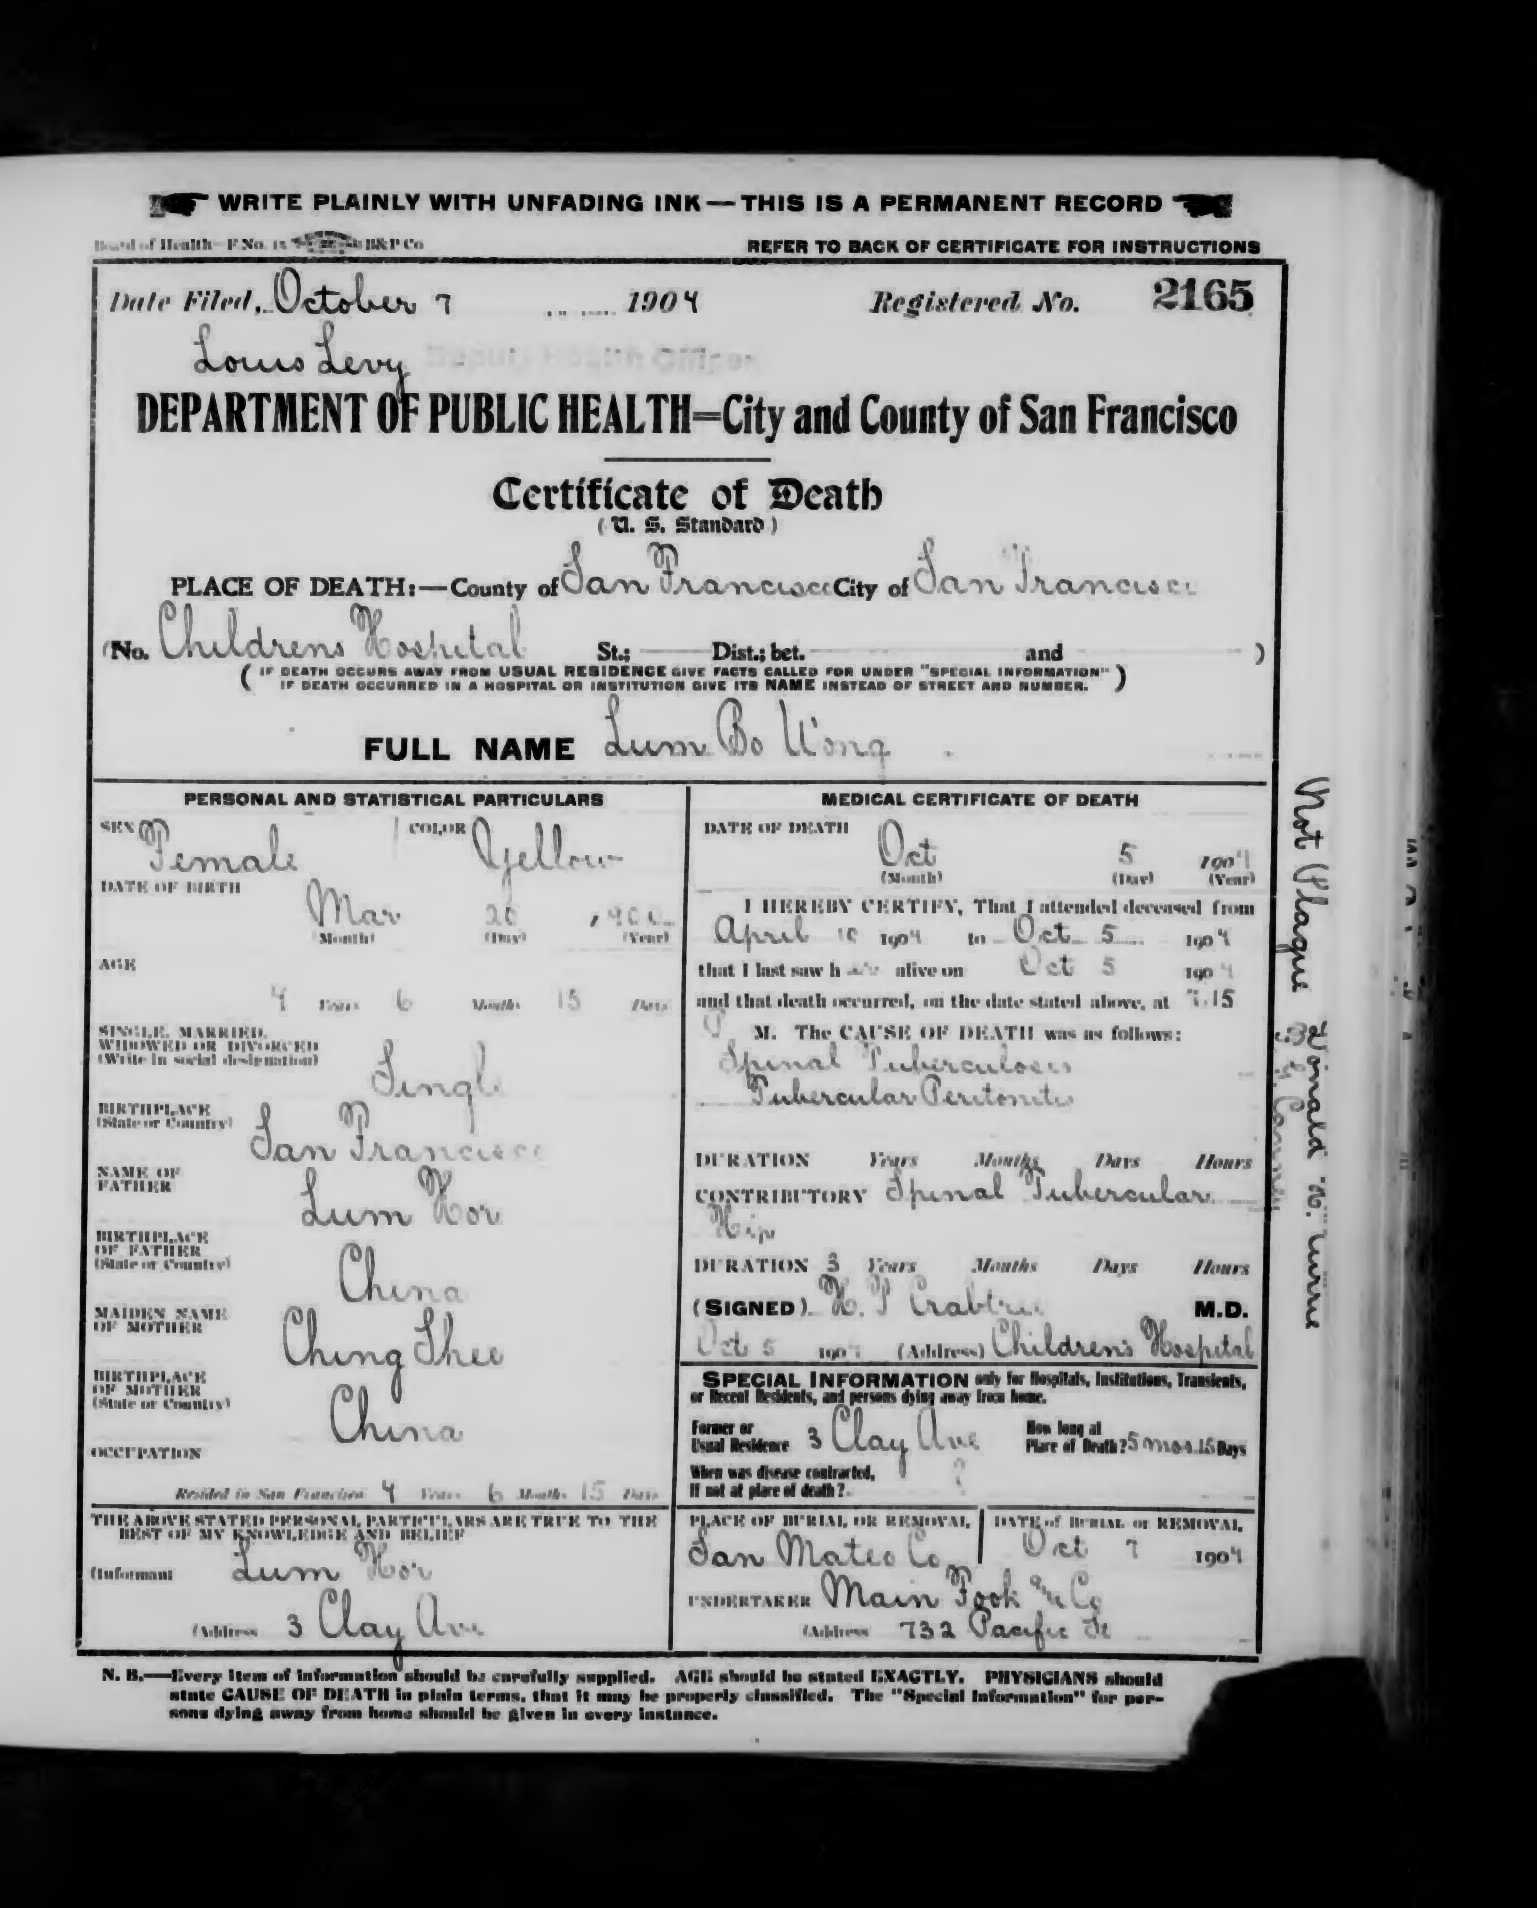 WRITE PLAINLY WITH UNFADING INK — THIS IS A PERMANENT RECORD
Board of Health—F. No. 15 B&P Co
REFER TO BACK OF CERTIFICATE FOR INSTRUCTIONS
Date Filed, October 7 1904 Registered No. 2165
Louis Levy Deputy Health Officer
DEPARTMENT OF PUBLIC HEALTH=City and County of San Francisco
Certificate of Death
(U. S. Standard)
PLACE OF DEATH:—County of San Francisco City of San Francisco
(No. Childrens Hospital St.; Dist.; bet. and )
( IF DEATH OCCURS AWAY FROM USUAL RESIDENCE GIVE FACTS CALLED FOR UNDER "SPECIAL INFORMATION" )
IF DEATH OCCURRED IN A HOSPITAL OR INSTITUTION GIVE ITS NAME INSTEAD OF STREET AND NUMBER.
FULL NAME Lum Bo Wong
PERSONAL AND STATISTICAL PARTICULARS
SEX Female COLOR Yellow
DATE OF BIRTH
Mar 20 1900
(Month) (Day) (Year)
AGE
4 Years 6 Months 15 Days
SINGLE, MARRIED,
WIDOWED OR DIVORCED
(Write in social designation)
Single
BIRTHPLACE
(State or Country)
San Francisco
NAME OF
FATHER
Lum Hor
BIRTHPLACE
OF FATHER
(State or Country)
China
MAIDEN NAME
OF MOTHER
Ching Shee
BIRTHPLACE
OF MOTHER
(State or Country)
China
OCCUPATION
Resided in San Francisco 4 Years 6 Months 15 Days
THE ABOVE STATED PERSONAL PARTICULARS ARE TRUE TO THE
BEST OF MY KNOWLEDGE AND BELIEF
(Informant Lum Hor
(Address 3 Clay Ave
MEDICAL CERTIFICATE OF DEATH
DATE OF DEATH
Oct 5 1904
(Month) (Day) (Year)
I HEREBY CERTIFY, That I attended deceased from
April 10 1904 to Oct 5 1904
that I last saw h alive on Oct 5 1904
and that death occurred, on the date stated above, at 7.15
P M. The CAUSE OF DEATH was as follows:
Spinal Tuberculosis
Tubercular Peritonitis
DURATION Years Months Days Hours
CONTRIBUTORY Spinal Tubercular
Hip
DURATION 3 Years Months Days Hours
(SIGNED) H. T Crabtree M.D.
Oct 5 1904 (Address) Children's Hospital
SPECIAL INFORMATION only for Hospitals, Institutions, Transients,
or Recent Residents, and persons dying away from home.
Former or
Usual Residence 3 Clay Ave
How long at
Place of Death? 5 mos. 15 Days
When was disease contracted,
If not at place of death? ?
PLACE OF BURIAL OR REMOVAL
San Mateo Co
DATE of BURIAL or REMOVAL
Oct 7 1904
UNDERTAKER Main Fook & Co
(Address 732 Pacific St
N. B.—Every item of information should be carefully supplied. AGE should be stated EXACTLY. PHYSICIANS should
state CAUSE OF DEATH in plain terms, that it may be properly classified. The "Special Information" for per-
sons dying away from home should be given in every instance.
Not Plague Donald H. Currie